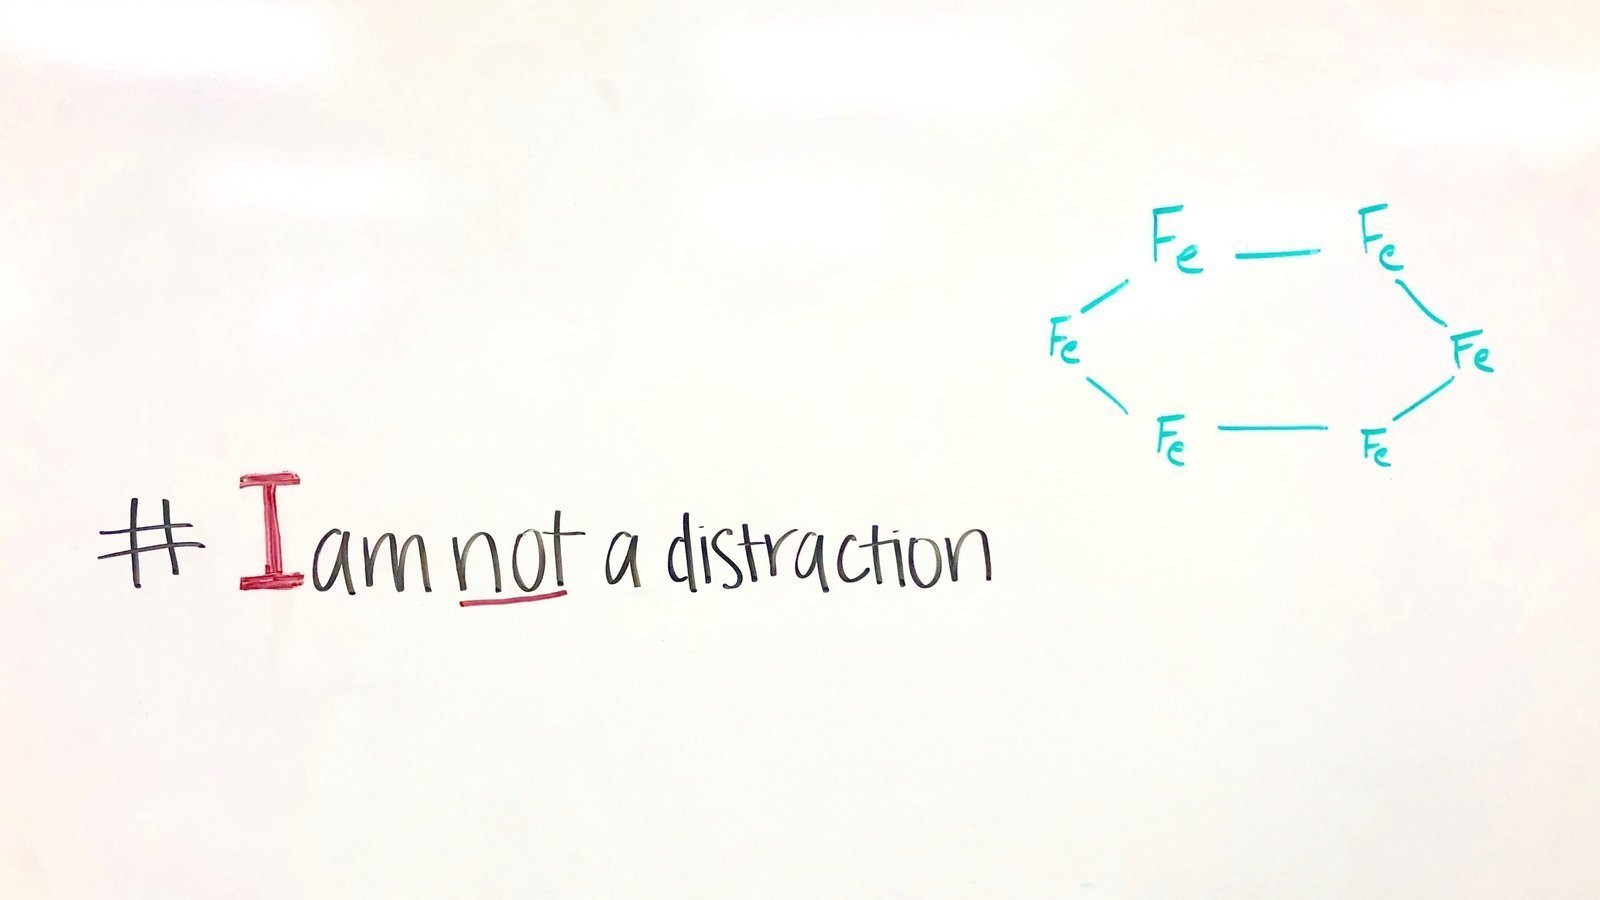 Fe — Fe
Fe Fe
Fe — Fe
# I am not a distraction